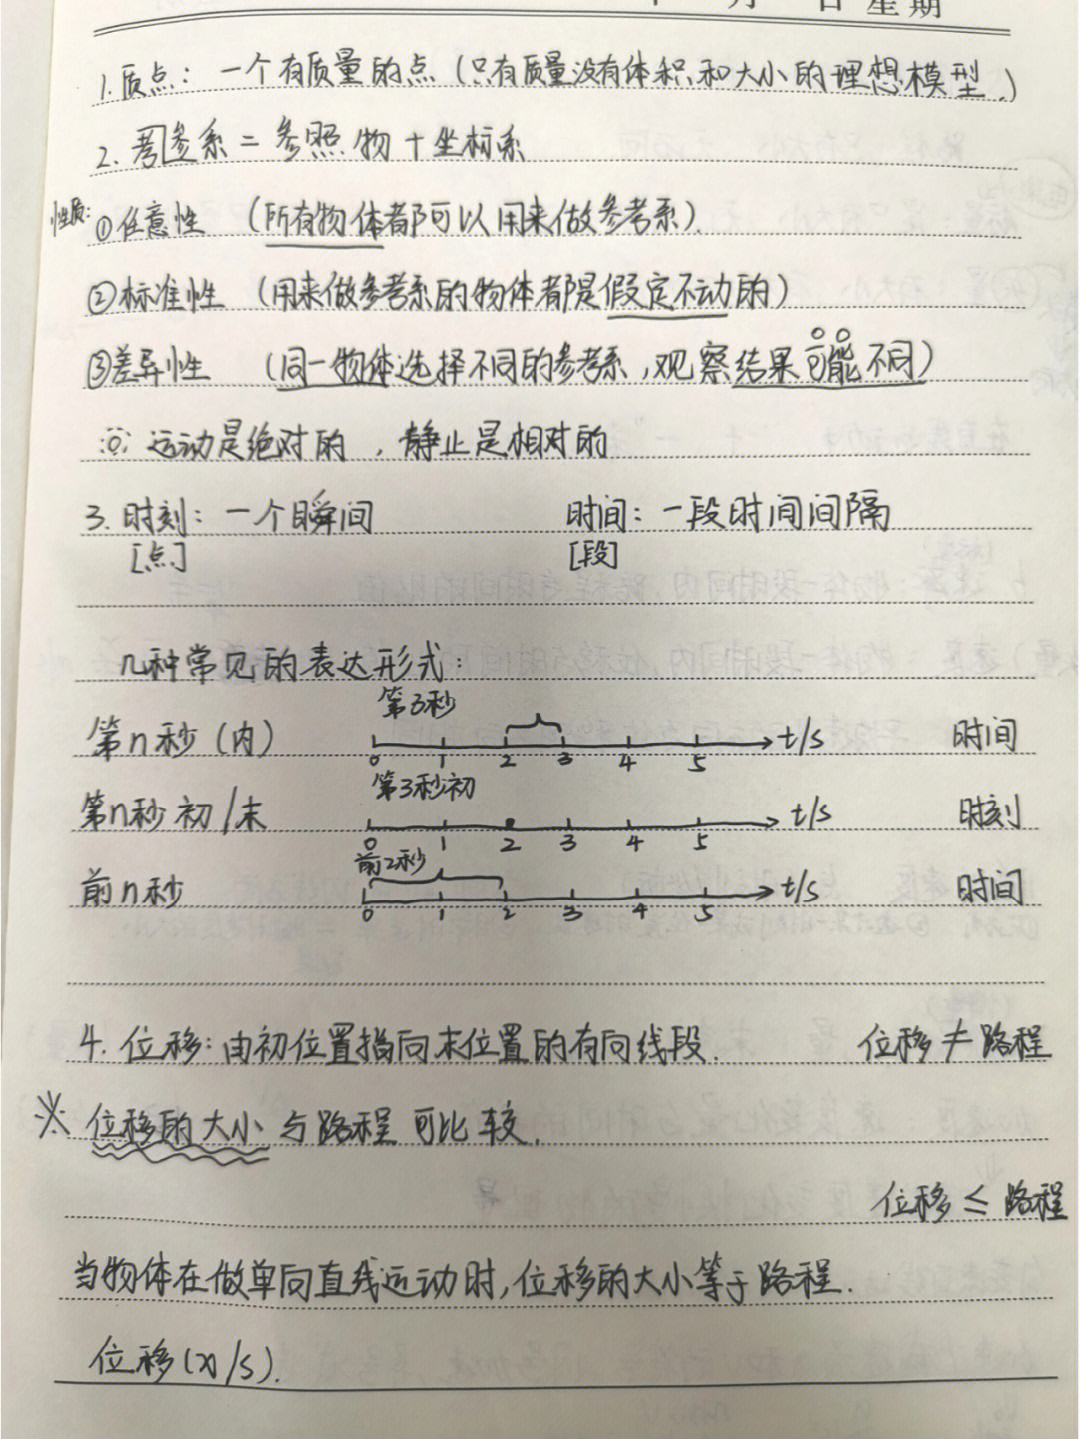 月 日 星期
1. 质点：一个有质量的点（只有质量没有体积和大小的理想模型.）
2. 参系 = 参照物 + 坐标系
性质：①任意性 （所有物体都可以用来做参考系）.
②标准性 （用来做参考系的物体都是假定不动的）
③差异性 （同一物体选择不同的参考系，观察结果可能不同）
运动是绝对的，静止是相对的
3. 时刻：一个瞬间 时间：一段时间间隔
[点] [段]
几种常见的表达形式：
第3秒
第n秒（内） t/s 时间
0 1 2 3 4 5
第3秒初
第n秒初/末 t/s 时刻
0 1 2 3 4 5
前2秒
前n秒 t/s 时间
0 1 2 3 4 5
4. 位移：由初位置指向末位置的有向线段. 位移≠路程
※ 位移的大小与路程可比较.
位移≤路程
当物体在做单向直线运动时，位移的大小等于路程.
位移(x/s).